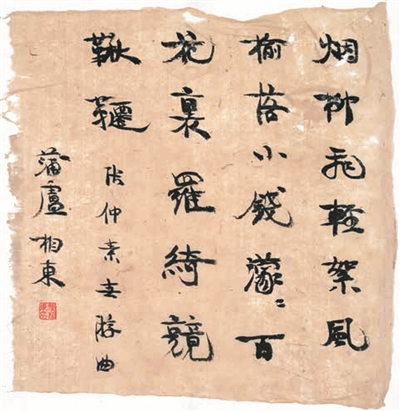 烟柳飛輕絮風
榆落小錢濛々百
花裏羅綺競
鞦韆
张仲素春游曲
蒲盧 相東